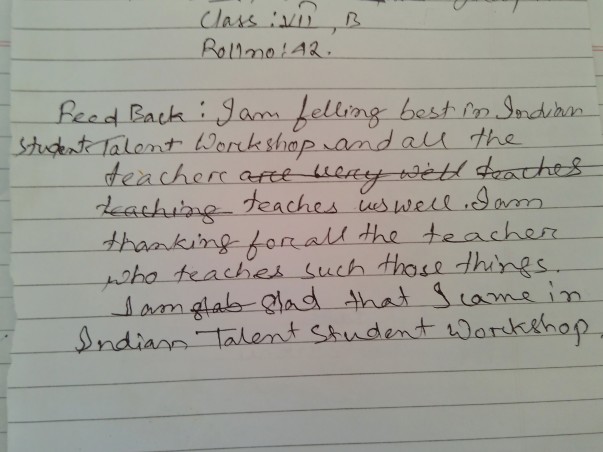 Class : VII, B
Roll no : 42.
Feed Back : I am felling best in Indian
Student Talent Workshop and all the
teacher are very well teaches
teaching teaches us well. I am
thanking for all the teacher
who teaches such those things.
I am glab glad that I came in
Indian Talent Student Workshop.